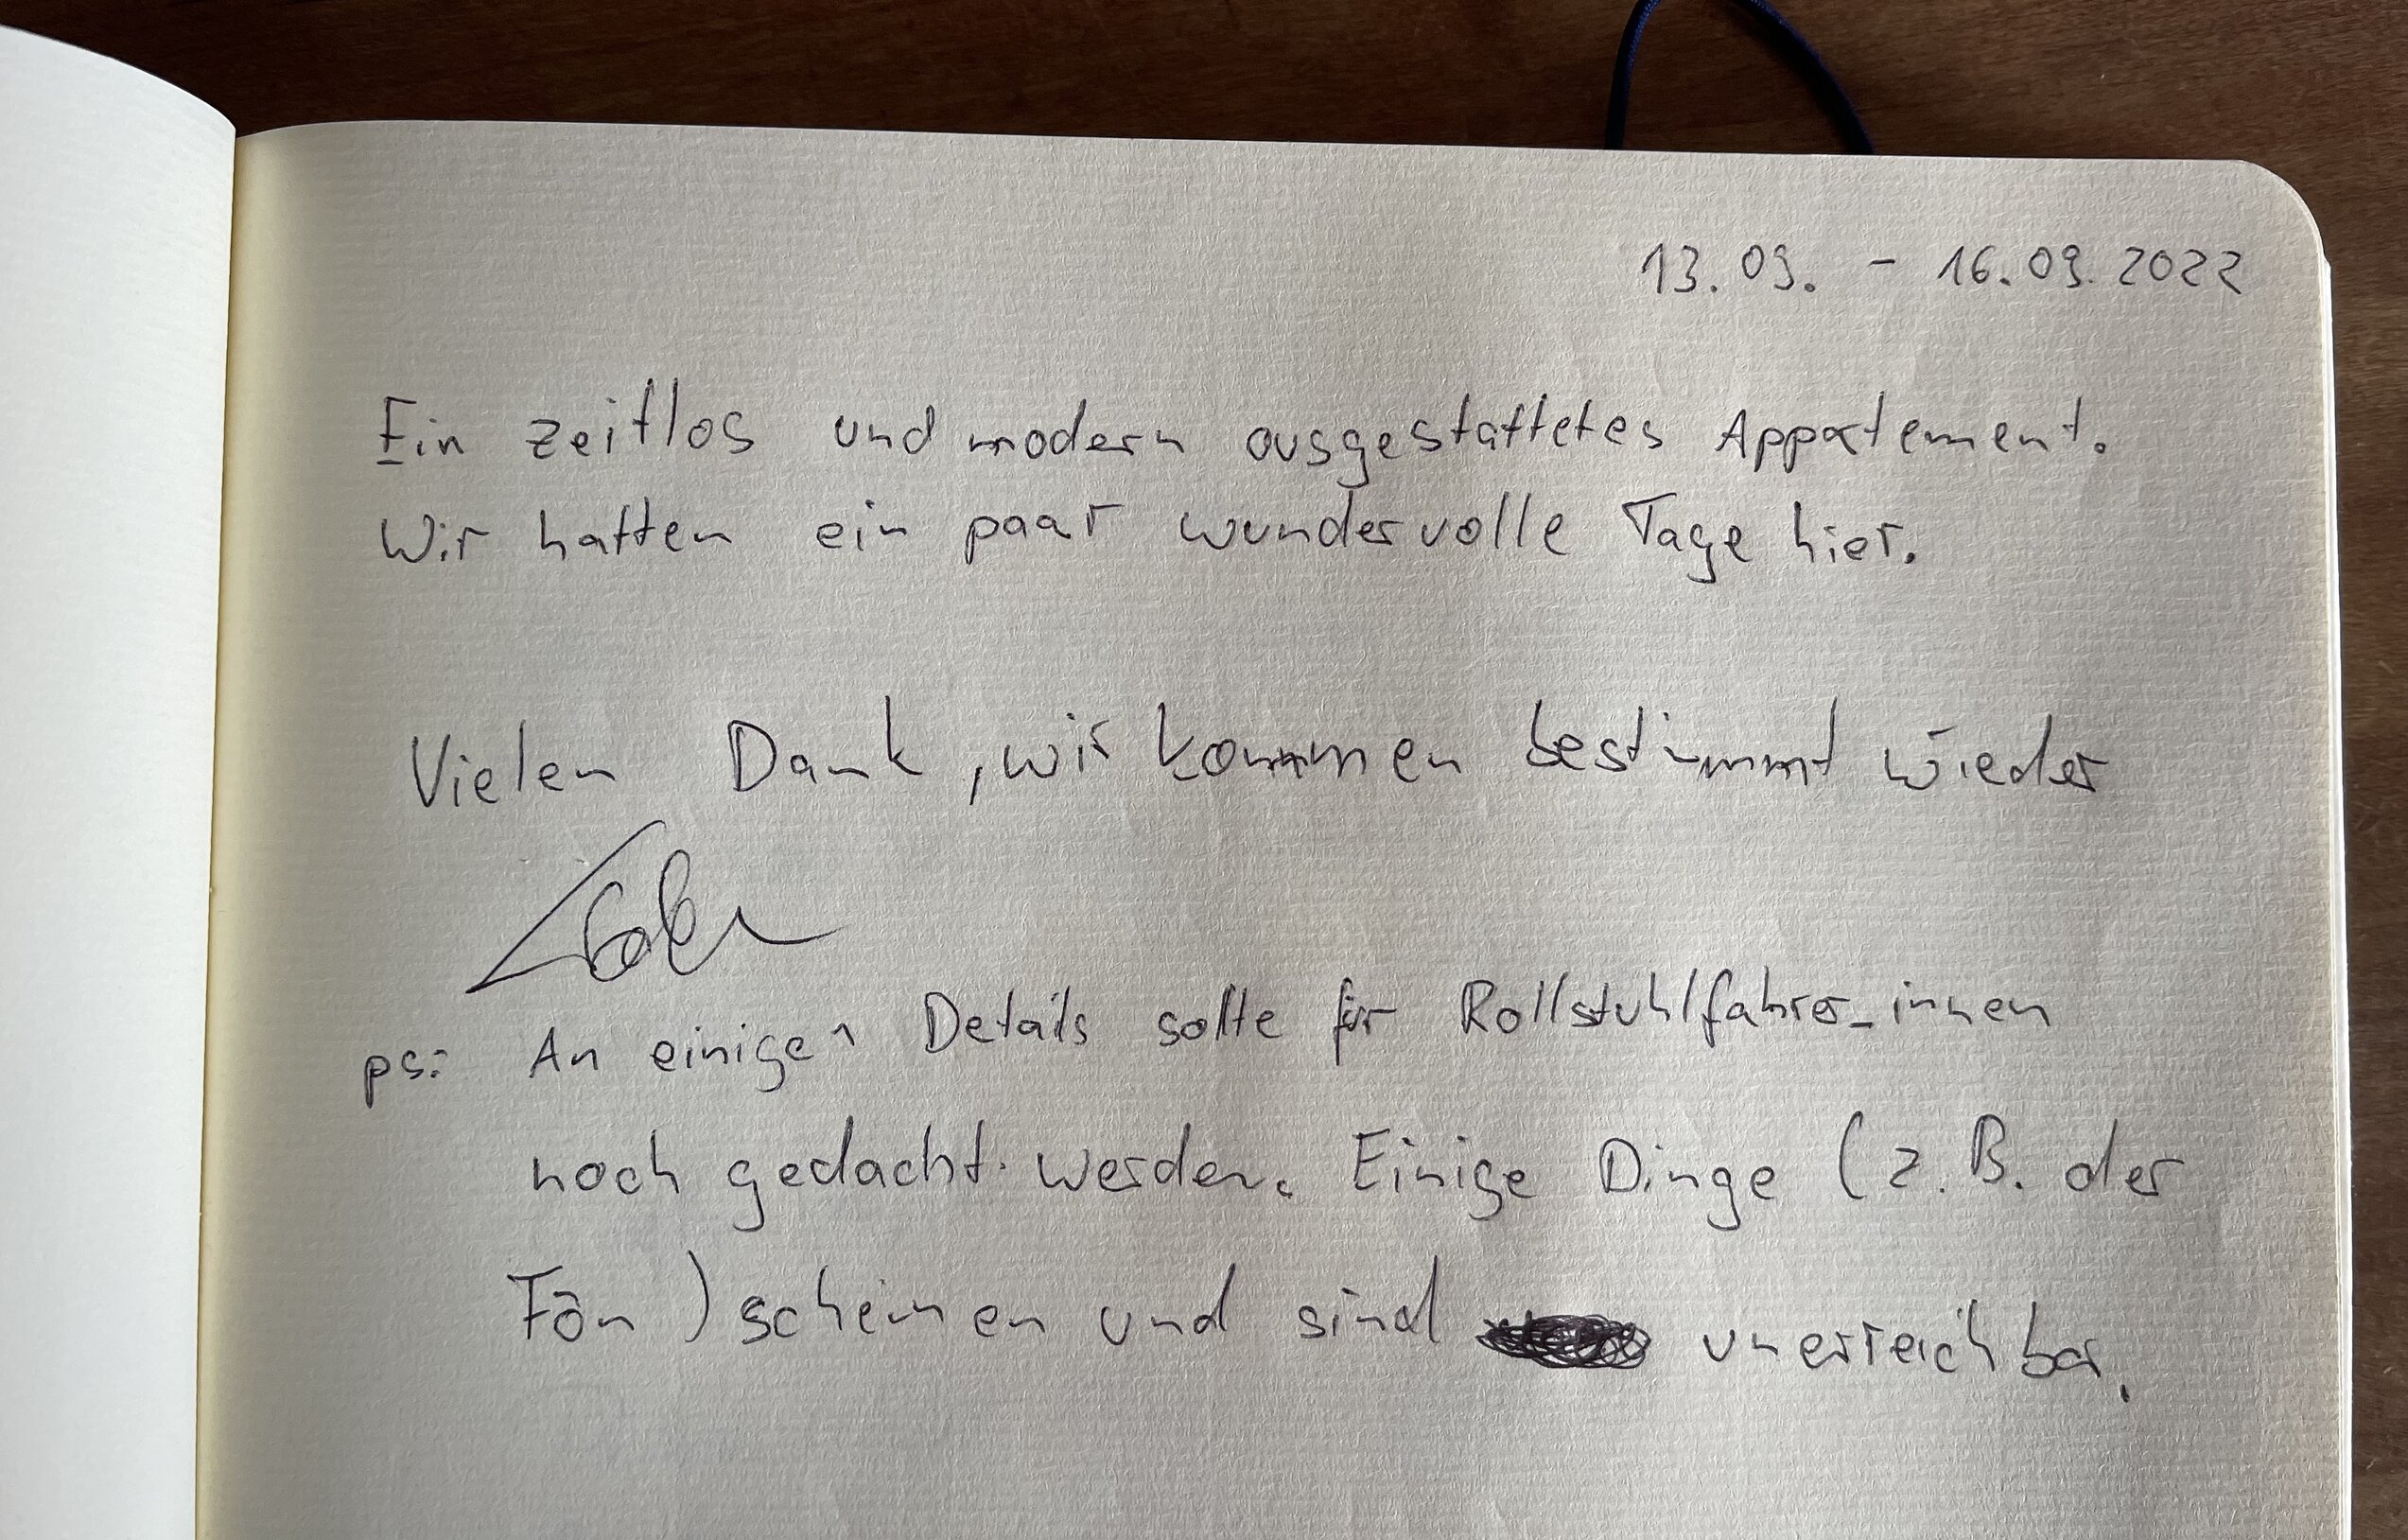 13.09. - 16.09.2022
Ein zeitlos und modern ausgestattetes Appartement.
Wir hatten ein paar wundervolle Tage hier.
Vielen Dank, wir kommen bestimmt wieder
ps: An einigen Details sollte für Rollstuhlfahrer_innen
noch gedacht werden. Einige Dinge (z.B. der
Fön) scheinen und sind unerreichbar.